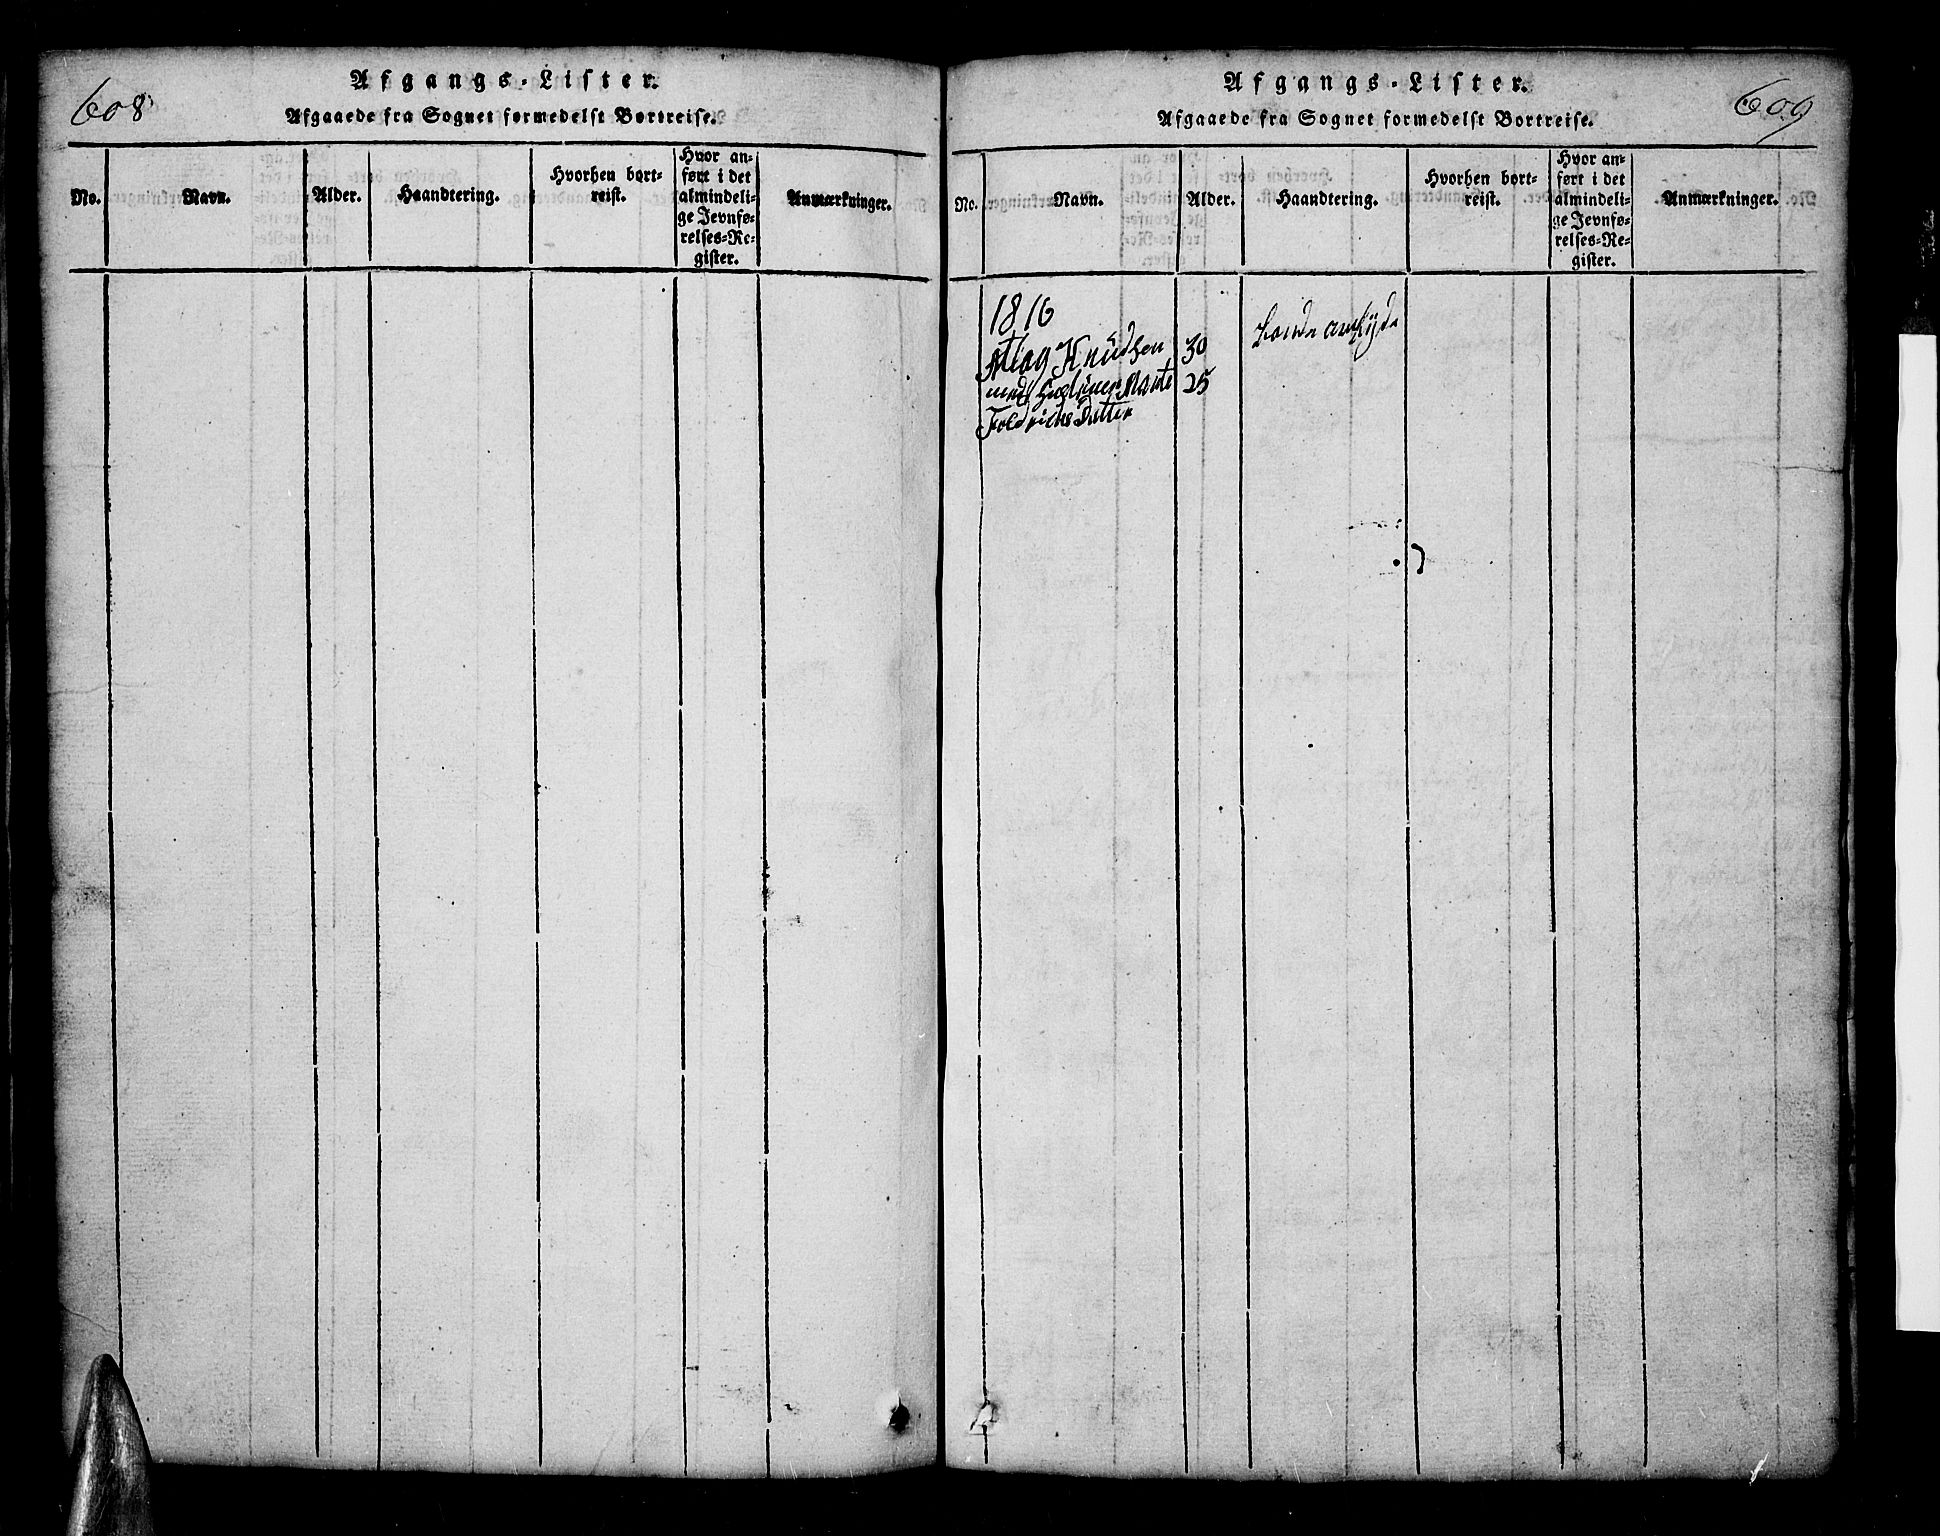 608
Afgangs-Lister.
Afgaaede fra Sognet formedelst Bortreise.
No.
Navn.
Alder.
Haandtering.
Hvorhen bort-
reist.
Hvor an-
ført i det
almindeli-
ge Jevnfø-
relses-Re-
gister.
Anmærkninger.
609
Afgangs-Lister.
Afgaaede fra Sognet formedelst Bortreise.
No.
Navn.
Alder.
Haandtering.
Hvorhen bort-
reist.
Hvor an-
ført i det
almindeli-
ge Jevnfø-
relses-Re-
gister.
Anmærkninger.
1816
Knudsen 30
med 25
Datter